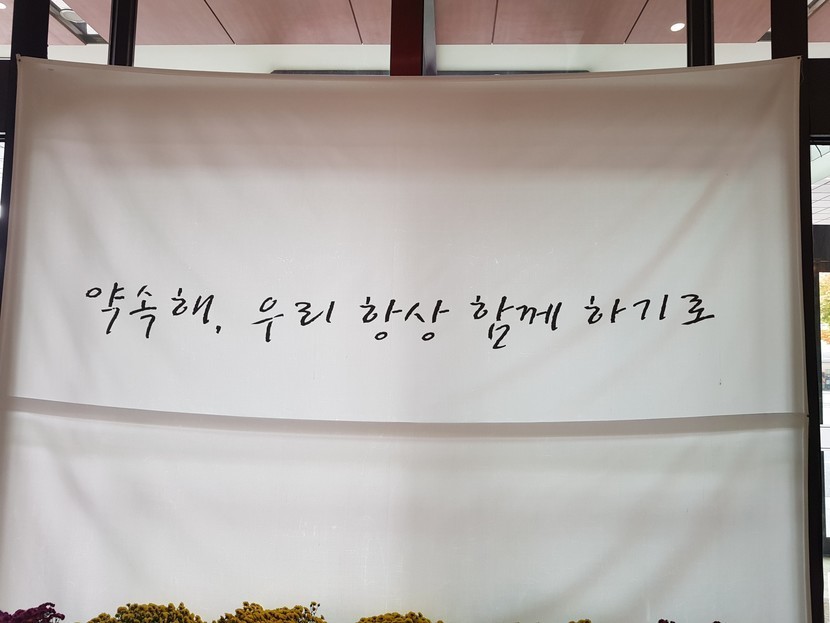 약속해, 우리 항상 함께 하기로